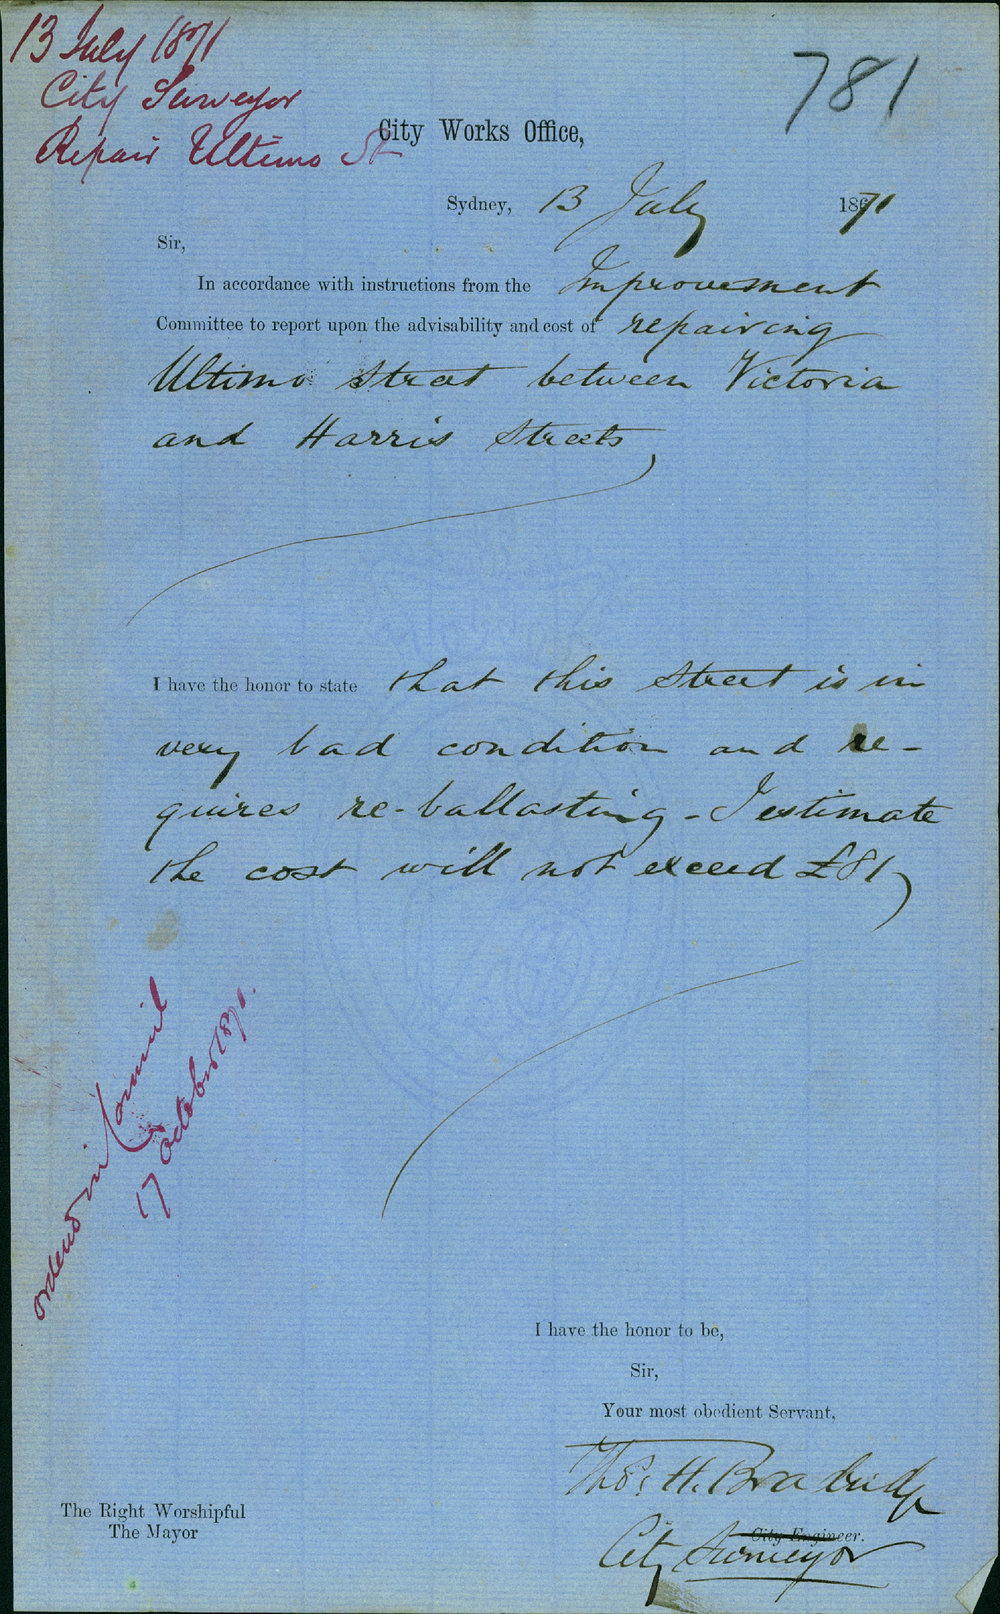 13 July 1871
City Surveyor
Repair Ultimo St
781
City Works Office,
Sydney, 13 July 1871
Sir,
In accordance with instructions from the Improvement
Committee to report upon the advisability and cost of repairing
Ultimo Street between Victoria
and Harris Streets,
I have the honor to state that this Street is in
very bad condition and re-
quires re-ballasting - I estimate
the cost will not exceed £81,
ordered in Council
17 October 1871.
I have the honor to be,
Sir,
Your most obedient Servant,
Thos. H. Brabridge
City Engineer.
City Surveyor
The Right Worshipful
The Mayor